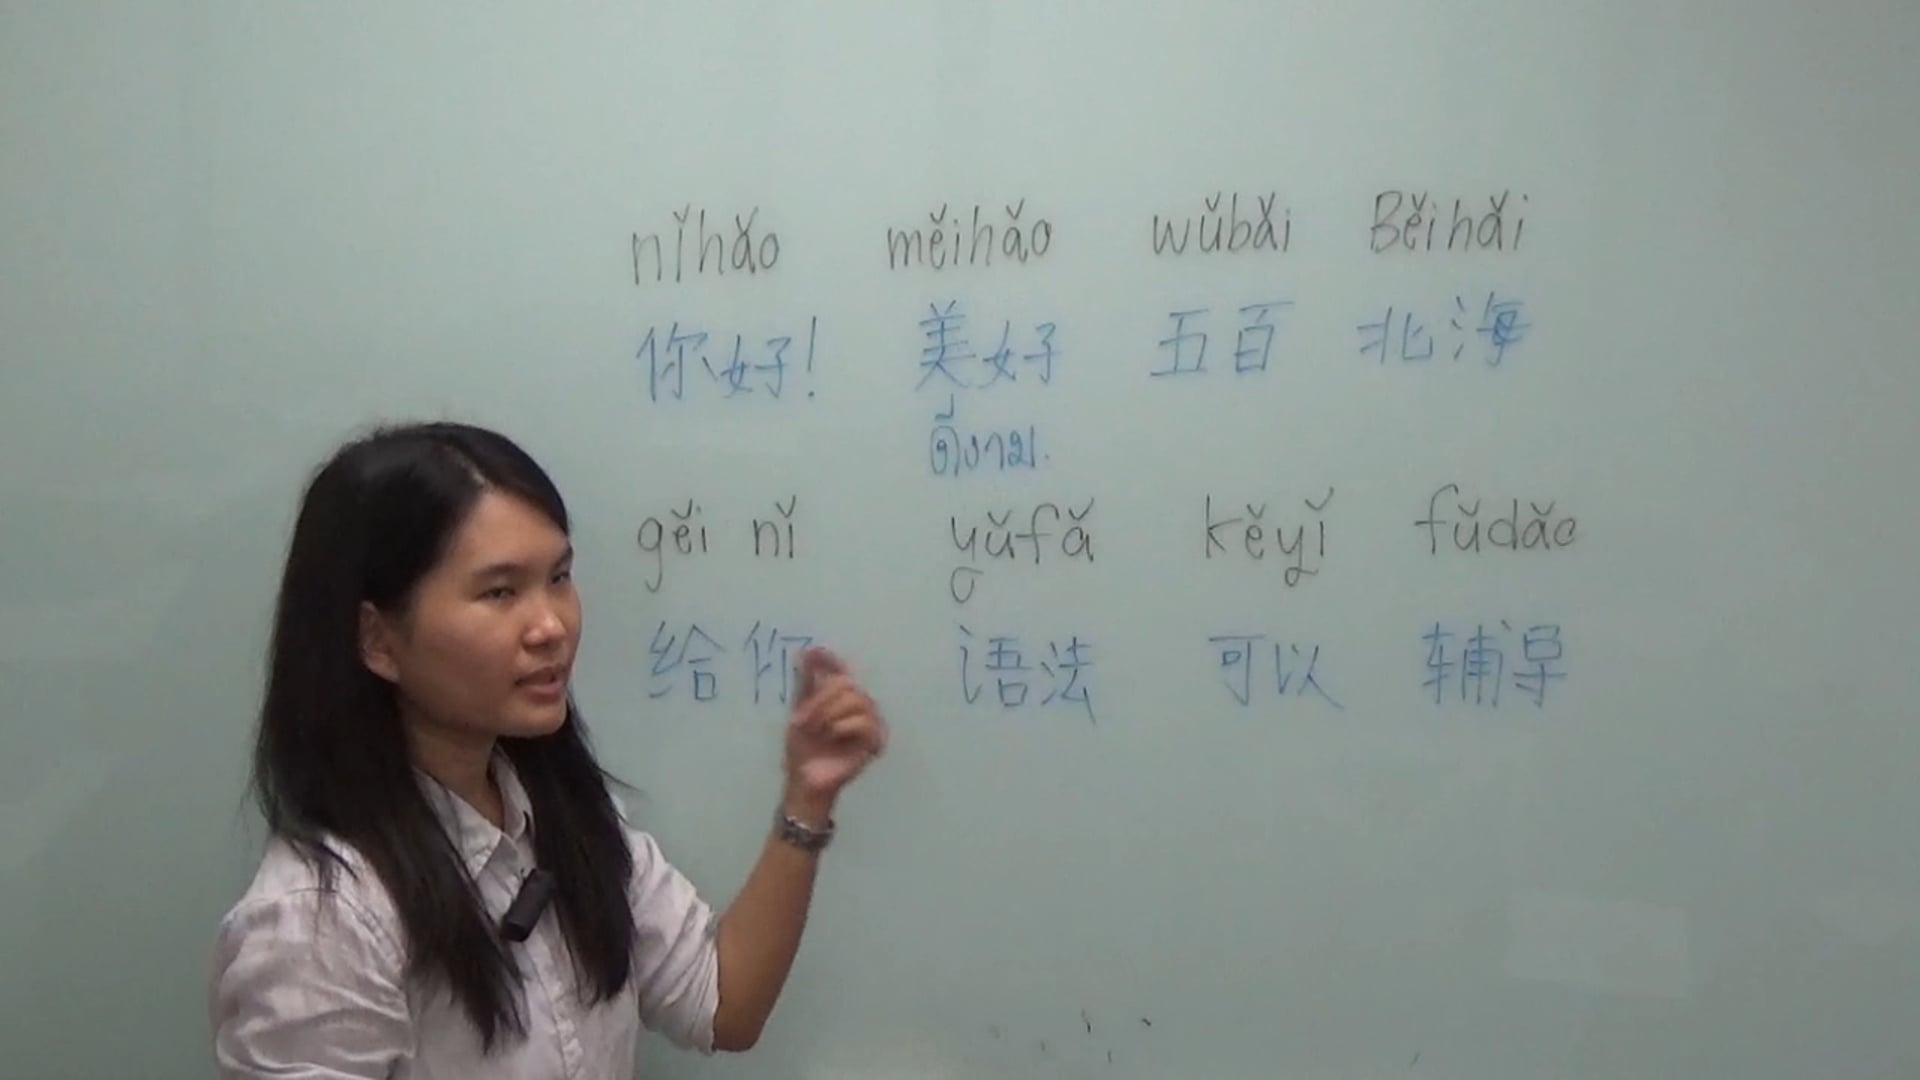 nǐhǎo měihǎo wǔbǎi Běihǎi
你好! 美好 五百 北海
ดีงาม.
gěi nǐ yǔfǎ kěyǐ fǔdǎo
给你 语法 可以 辅导